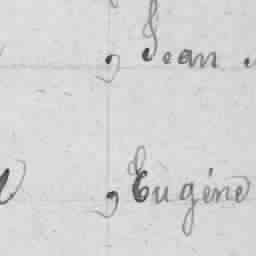 , Jean
, Eugène